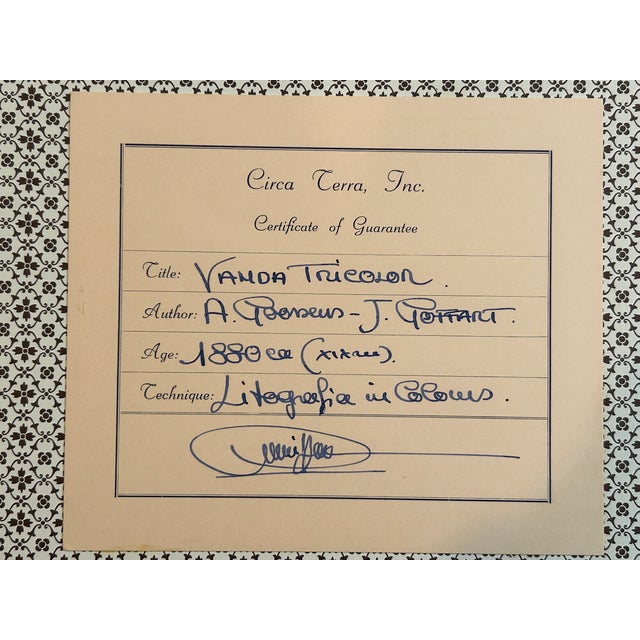 Circa Terra, Inc.
Certificate of Guarantee
Title: VANDA TRICOLOR.
Author: A. Goossens - J. Goffart.
Age: 1880 ca (XIX sec).
Technique: Litografia in Colours.